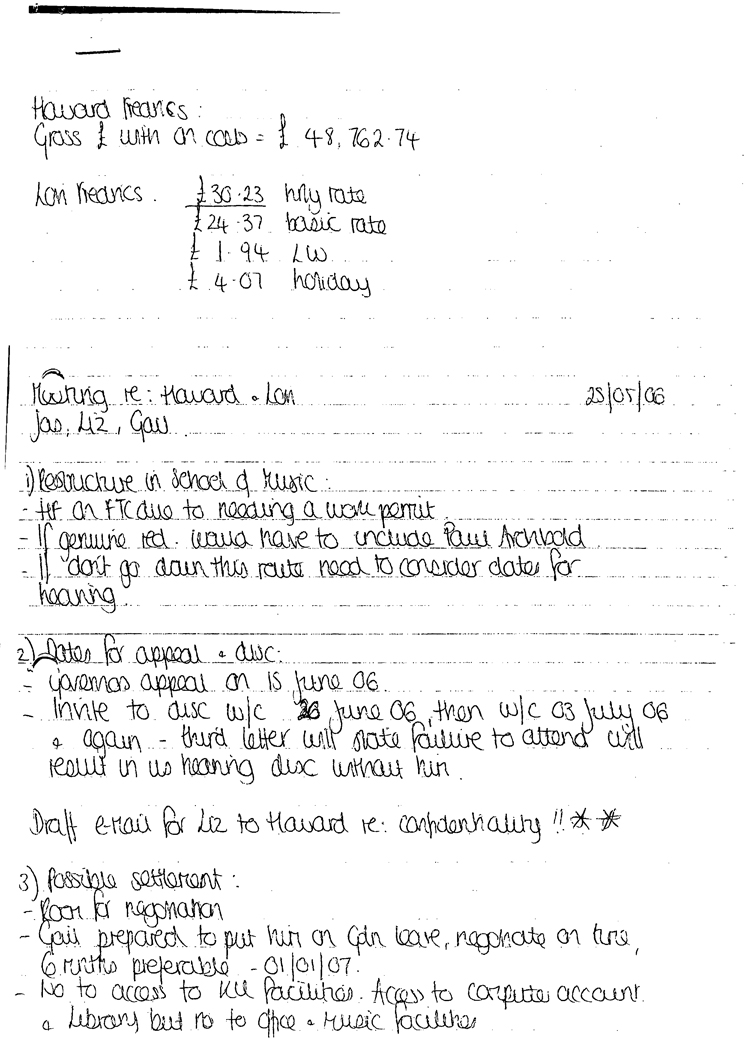 Howard Fredrics :
Gross £ with on costs = £ 48,762.74
Lori Fredrics. £30.23 hrly rate
£24.37 basic rate
£ 1.94 LW
£ 4.07 holiday
Meeting re: Howard & Lori 25/05/06
Jas, Liz, Gail
1) Restructure in School of Music :
- HF on FTC due to needing a work permit.
- If genuine red. would have to include Paul Archbold
- If don't go down this route need to consider dates for
hearing
2) Dates for appeal & disc:
- Governors appeal on 15 June 06
- Invite to disc w/c 26 June 06, then w/c 03 July 06
& again - third letter will state failure to attend will
result in us hearing disc without him.
Draft e-mail for Liz to Howard re: confidentiality !! * *
3) Possible settlement :
- Room for negotiation
- Gail prepared to put him on Gdn leave, negotiate on time,
6 mnths preferable - 01/01/07.
- No to access to KU facilities. Access to computer account
& Library but no to office & music facilities